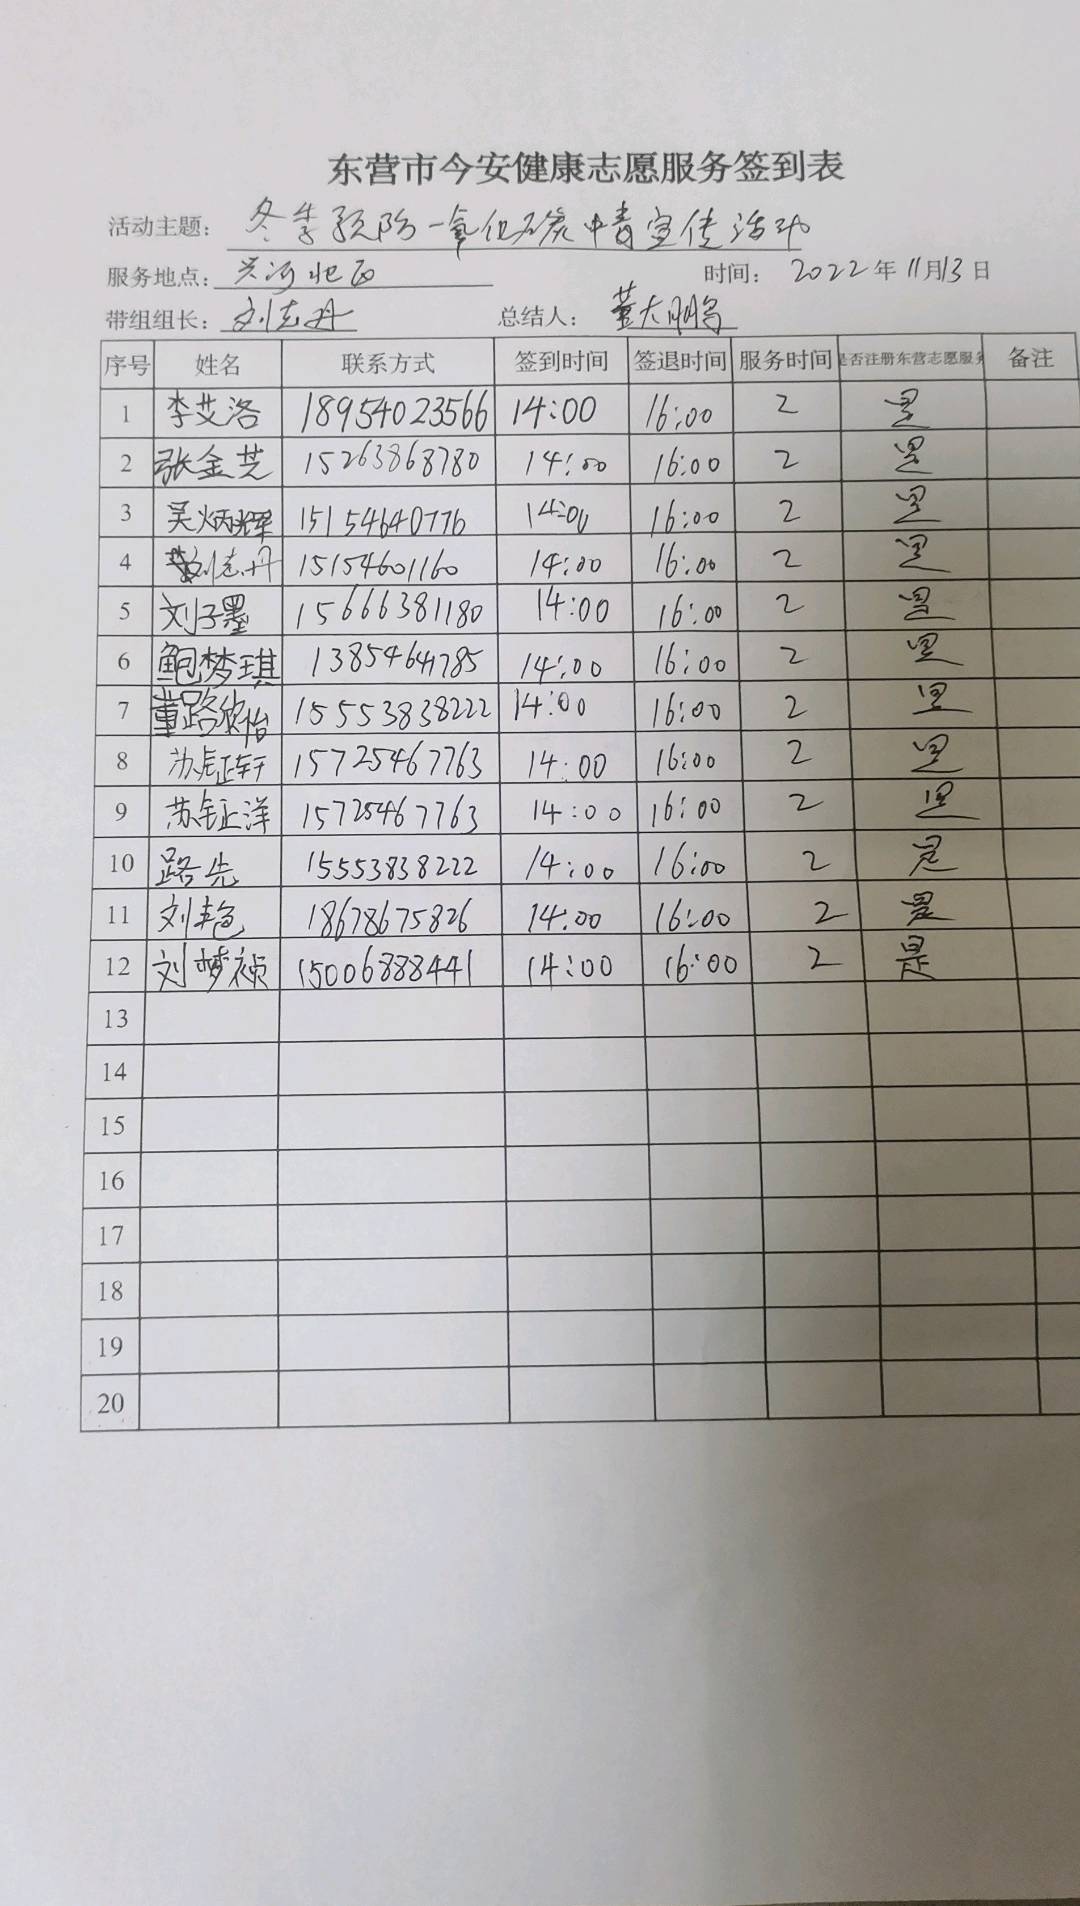 东营市今安健康志愿服务签到表
活动主题: 冬季预防一氧化碳中毒宣传活动
服务地点: 兴河北区 时间: 2022年11月13日
带组组长: 刘志丹 总结人: 董大鹏
序号 姓名 联系方式 签到时间 签退时间 服务时间 是否注册东营志愿服务 备注
1 李艾洛 18954023566 14:00 16:00 2 是
2 张金芝 15263868780 14:00 16:00 2 是
3 吴炳辉 15154640776 14:00 16:00 2 是
4 刘志丹 15154601160 14:00 16:00 2 是
5 刘子墨 15666381180 14:00 16:00 2 是
6 鲍梦琪 13854641785 14:00 16:00 2 是
7 董路欣怡 15553838222 14:00 16:00 2 是
8 苏钲轩 15725467763 14:00 16:00 2 是
9 苏钲洋 15725467763 14:00 16:00 2 是
10 路先 15553838222 14:00 16:00 2 是
11 刘艳 18678675826 14:00 16:00 2 是
12 刘梦祯 15006888441 14:00 16:00 2 是
13
14
15
16
17
18
19
20